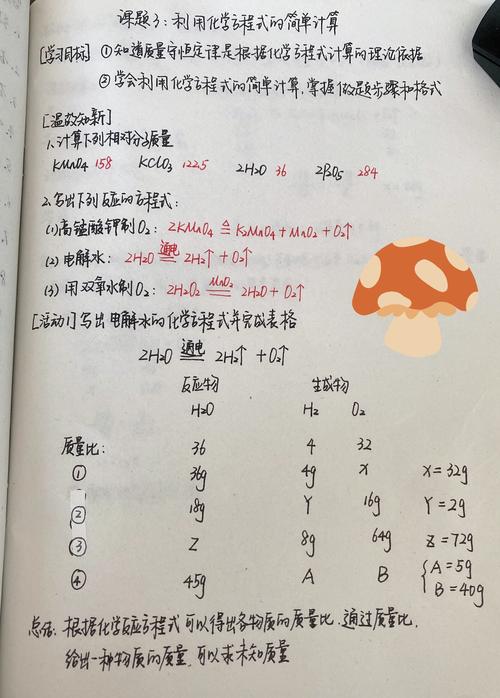 课题3：利用化学方程式的简单计算
[学习目标] ①知道质量守恒定律是根据化学方程式计算的理论依据
②学会利用化学方程式的简单计算，掌握做题步骤和格式
[温故知新]
1.计算下列相对分子质量
KMnO4 158 KClO3 122.5 2H2O 36 2P2O5 284
2.写出下列反应的方程式：
(1)高锰酸钾制O2：2KMnO4 ≜ K2MnO4 + MnO2 + O2↑
(2)电解水：2H2O 通电 2H2↑ + O2↑
(3)用双氧水制O2：2H2O2 MnO2 2H2O + O2↑
[活动1]写出电解水的化学方程式并完成表格
2H2O 通电 2H2↑ + O2↑
反应物 生成物
H2O H2 O2
质量比： 36 4 32
① 36g 4g X X=32g
② 18g Y 16g Y=2g
③ Z 8g 64g Z=72g
④ 45g A B { A=5g
B=40g
总结：根据化学反应方程式可以得出各物质的质量比，通过质量比，
给出一种物质的质量，可以求未知质量